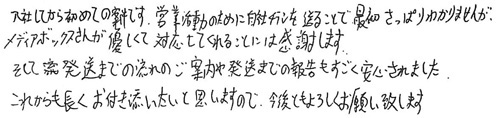 入社してから初めての製作です。営業活動のために自社チラシを送ることで最初さっぱりわかりませんが、
メディアボックスさんが優しくて対応してくれることには感謝します。
そして発送までの流れのご案内や発送までの報告もすごく安心されました。
これからも長くお付き添いたいと思いますので、今後ともよろしくお願い致します